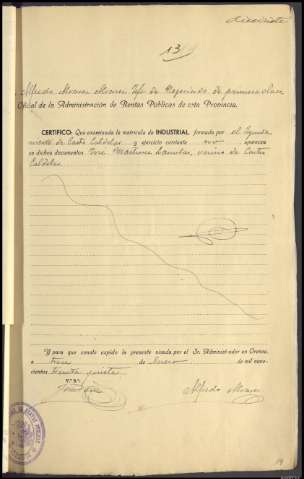 diecisiete
13
Alfredo Alvarez Alvarez Jefe de Negociado de primera clase
Oficial de la Administración de Rentas Públicas de esta Provincia.
CERTIFICO: Que examinada la matrícula de INDUSTRIAL formada por el Ayunta
miento de Castro Caldelas y ejercicio corriente no aparece
en dichos documentos José Martínez vecino de Castro
Caldelas
Y para que conste expido la presente visada por el Sr. Administrador en Orense,
a trece de Enero de mil nove-
cientos treinta y siete
V.º B.º
Alfredo Alvarez